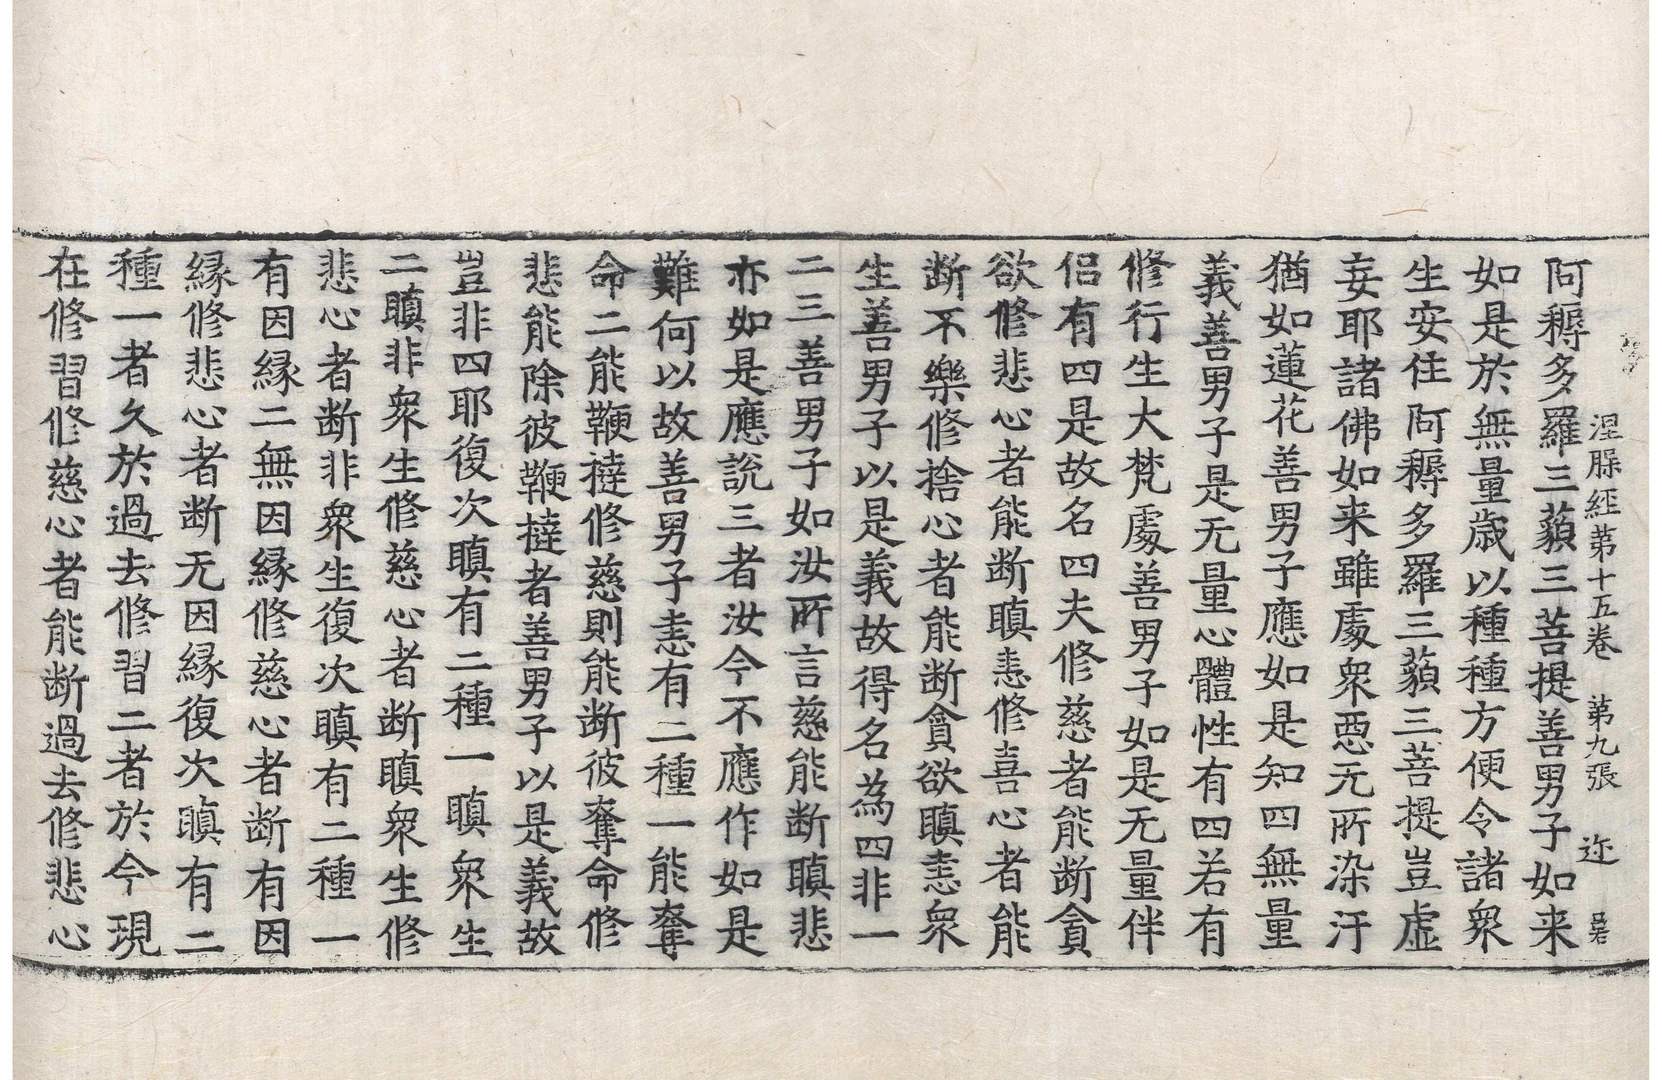 涅脲経苐十五卷 苐九張 迩
阿耨多羅三藐三菩提善男子如来
如是於無量歳以種種方便令諸衆
生安住阿耨多羅三藐三菩提豈虛
妄耶諸佛如来雖處衆惡无所染汙
猶如蓮花善男子應如是知四無量
義善男子是无量心體性有四若有
修行生大梵處善男子如是无量伴
侣有四是故名四夫修慈者能断貪
欲修悲心者能断瞋恚修喜心者能
断不樂修捨心者能断貪欲瞋恚衆
生善男子以是義故得名為四非一
二三善男子如汝所言慈能断瞋悲
亦如是應說三者汝今不應作如是
難何以故善男子恚有二種一能奪
命二能鞭撻修慈則能断彼奪命修
悲能除彼鞭撻者善男子以是義故
豈非四耶復次瞋有二種一瞋衆生
二瞋非衆生修慈心者断瞋衆生修
悲心者断非衆生復次瞋有二種一
有因縁二無因縁修慈心者断有因
縁修悲心者断无因縁復次瞋有二
種一者久於過去修習二者於今現
在修習修慈心者能断過去修悲心